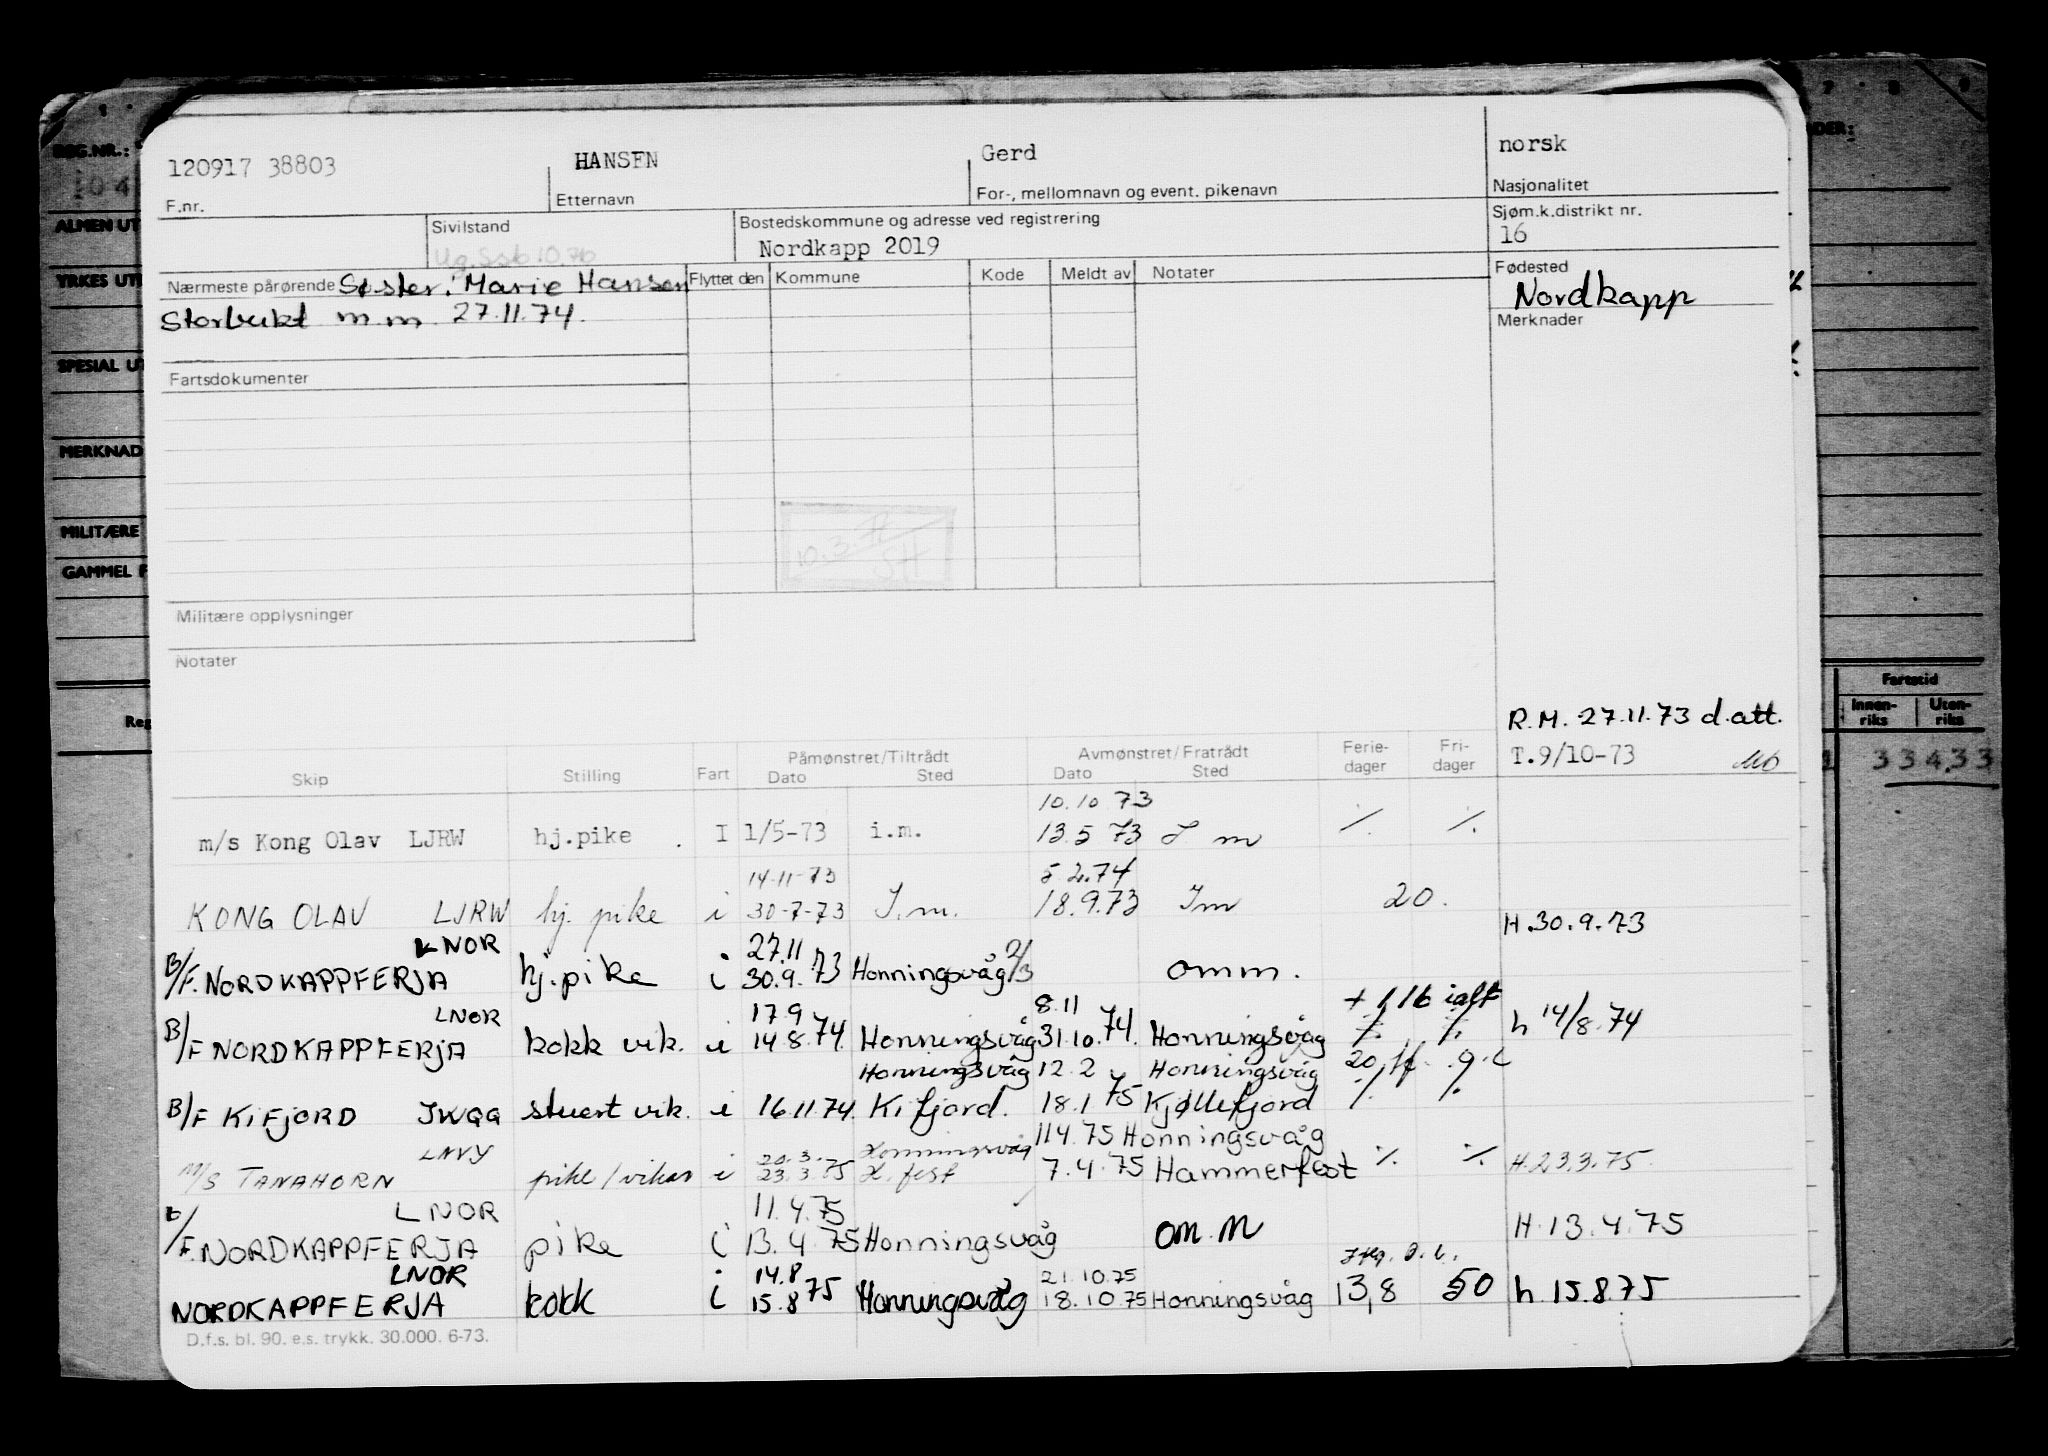 120917 38803 HANSEN Gerd norsk
F.nr. Etternavn For-, mellomnavn og event. pikenavn Nasjonalitet
Sivilstand Bostedskommune og adresse ved registrering Sjøm.k.distrikt nr.
Ug. Ssb 10.76 Nordkapp 2019 16
Nærmeste pårørende Søster: Marie Hansen Flyttet den Kommune Kode Meldt av Notater Fødested
Storbukt m m. 27.11.74. Nordkapp
Merknader
Fartsdokumenter
10.3.
SH
Militære opplysninger
Notater
R.M. 27.11.73 d.att.
Påmønstret/Tiltrådt Avmønstret/Fratrådt Ferie- Fri- T.9/10-73
Skip Stilling Fart Dato Sted Dato Sted dager dager
10.10 73
m/s Kong Olav LJRW hj.pike . I 1/5-73 i.m. 13.5 73 I m ٪ ٪
14-11-73 5.2.74
KONG OLAV LJRW hj. pike i 30-7-73 I.m. 18.9.73 Im 20. H.30.9.73
LNOR 27.11 2/3
B/F. NORDKAPPFERJA hj.pike i 30.9.73 Honningsvåg omm.
LNOR 17.9 8.11 + 1,16 ialt
B/F NORDKAPPFERJA kokk vik. i 14.8.74. Honningsvåg 31.10.74. Honningsvåg ٪ ٪ h 14/8.74
Honningsvåg 12.2 Honningsvåg 20
B/F KIFJORD JWGG stuert vik. i 16.11.74. Kifjord. 18.1 75 Kjøllefjord ٪ ٪
LNVY 20.3. Honningsvåg 11.4.75 Honningsvåg
M/S TANAHORN pike/vikar i 23.3.75 H.fest 7.4.75 Hammerfest ٪ ٪ H.23.3.75.
LNOR 11.4.75
F. NORDKAPPFERJA pike i 13.4.75 Honningsvåg om.m H.13.4.75
LNOR 14.8 21.10.75
NORDKAPPFERJA kokk i 15.8 75 Honningsvåg 18.10.75 Honningsvåg 13,8 50 h.15.8.75
D.f.s. bl. 90. e.s. trykk. 30.000. 6-73.
REG.NR.:
104
ALMEN UT
YRKES UT
SPESIAL UT
MERKNAD
MILITÆRE
GAMMEL F
Reg
7 8 9
DER:
Fartstid
Innen-riks Uten-riks
33433